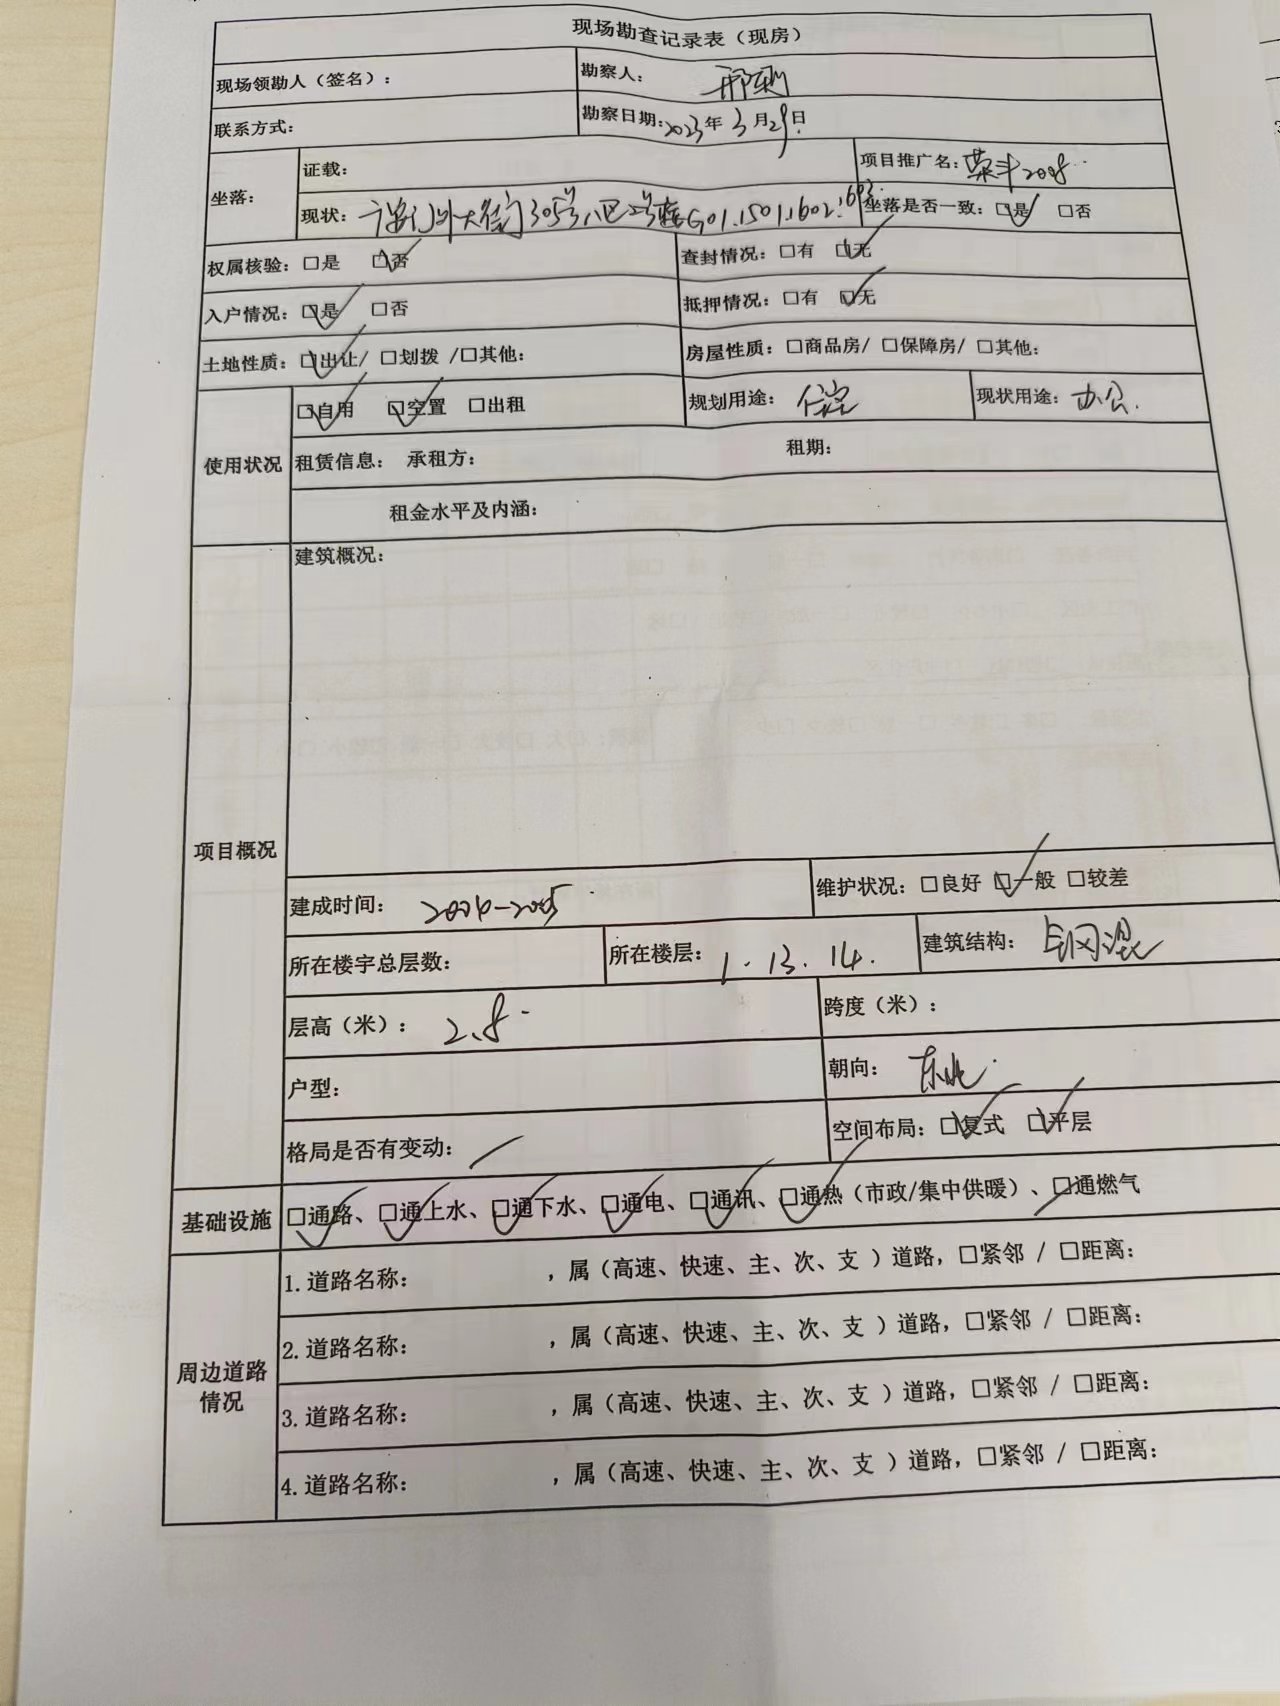 现场勘查记录表（现房）
现场领勘人（签名）： 勘察人： 邢刚
联系方式： 勘察日期：2023年3月29日
坐落： 证载： 项目推广名：荣丰2008
现状：广安门外大街305号八区2号楼G01.1501.1602.1603. 坐落是否一致：☑是 □否
权属核验：□是 ☑否 查封情况：□有 ☑无
入户情况：☑是 □否 抵押情况：□有 ☑无
土地性质：☑出让/ □划拨 /□其他： 房屋性质：□商品房/ □保障房/ □其他：
使用状况 ☑自用 ☑空置 □出租 规划用途：住宅 现状用途：办公.
租赁信息： 承租方： 租期：
租金水平及内涵：
项目概况 建筑概况：
建成时间：2004-2005 维护状况：□良好 ☑一般 □较差
所在楼宇总层数： 所在楼层：1.13.14. 建筑结构：钢混
层高（米）：2.8 跨度（米）：
户型： 朝向：东北.
格局是否有变动：／ 空间布局：☑复式 ☑平层
基础设施 ☑通路、☑通上水、☑通下水、☑通电、☑通讯、☑通热（市政/集中供暖）、□通燃气
周边道路情况 1.道路名称： ，属（高速、快速、主、次、支 ）道路，□紧邻 / □距离：
2.道路名称： ，属（高速、快速、主、次、支 ）道路，□紧邻 / □距离：
3.道路名称： ，属（高速、快速、主、次、支 ）道路，□紧邻 / □距离：
4.道路名称： ，属（高速、快速、主、次、支 ）道路，□紧邻 / □距离：